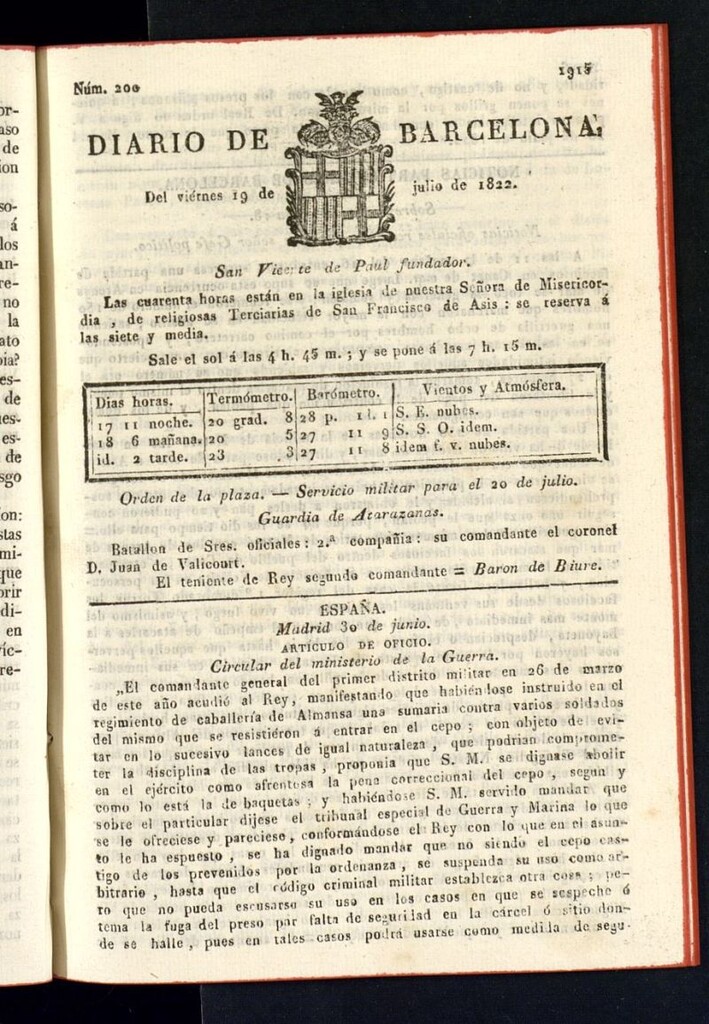 Núm. 200
1915
DIARIO DE BARCELONA,
Del viérnes 19 de julio de 1822.
San Vicente de Paul fundador.
Las cuarenta horas están en la iglesia de nuestra Señora de Misericor-
dia , de religiosas Terciarias de San Francisco de Asis : se reserva á
las siete y media.
Sale el sol á las 4 h. 45 m. ; y se pone á las 7 h. 15 m.
Dias horas. Termómetro. Barómetro. Vientos y Atmósfera.
17 11 noche. 20 grad. 8 28 p. 11. 1 S. E. nubes.
18 6 mañana. 20 5 27 11 9 S. S. O. idem.
id. 2 tarde. 23 3 27 11 8 idem f. v. nubes.
Orden de la plaza. — Servicio militar para el 20 de julio.
Guardia de Atarazanas.
Batallon de Sres. oficiales : 2.ª compañia : su comandante el coronel
D. Juan de Valicourt.
El teniente de Rey segundo comandante = Baron de Biure.
ESPAÑA.
Madrid 30 de junio.
ARTÍCULO DE OFICIO.
Circular del ministerio de la Guerra.
„El comandante general del primer distrito militar en 26 de marzo
de este año acudió al Rey, manifestando que habiéndose instruido en el
regimiento de caballería de Almansa una sumaria contra varios soldados
del mismo que se resistiéron á entrar en el cepo ; con objeto de evi-
tar en lo sucesivo lances de igual naturaleza , que podrian comprome-
ter la disciplina de las tropas , proponia que S. M. se dignase abolir
en el ejército como afrentosa la pena correccional del cepo , segun y
como lo está la de baquetas ; y habiéndose S. M. servido mandar que
sobre el particular dijese el tribunal especial de Guerra y Marina lo que
se le ofreciese y pareciese, conformándose el Rey con lo que en el asun-
to le ha espuesto , se ha dignado mandar que no siendo el cepo cas-
tigo de los prevenidos por la ordenanza , se suspenda su uso como ar-
bitrario , hasta que el código criminal militar establezca otra cosa ; pe-
ro que no pueda escusarse su uso en los casos en que se sospeche ó
tema la fuga del preso por falta de seguridad en la cárcel ó sitio don-
de se halle , pues en tales casos podrá usarse como medida de segu-